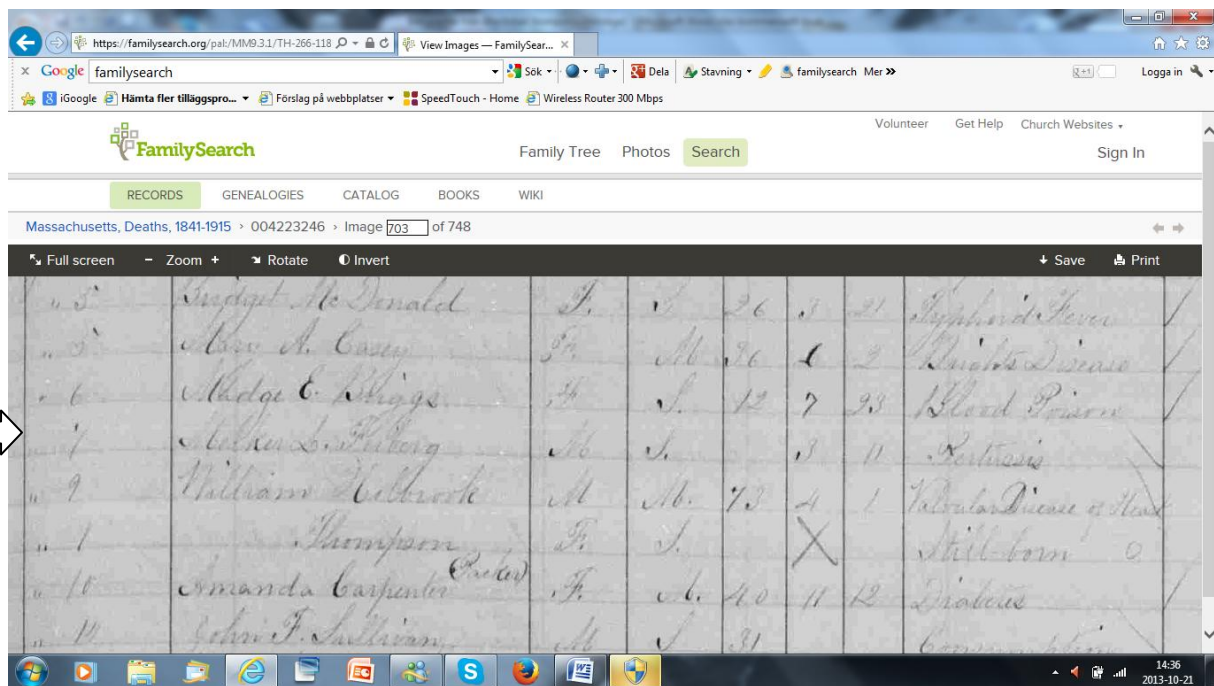 https://familysearch.org/pal:/MM9.3.1/TH-266-118 View Images — FamilySear...
Google familysearch Sök Dela Stavning familysearch Mer » Logga in
iGoogle Hämta fler tilläggspro... Förslag på webbplatser SpeedTouch - Home Wireless Router 300 Mbps
Volunteer Get Help Church Websites
FamilySearch Family Tree Photos Search Sign In
RECORDS GENEALOGIES CATALOG BOOKS WIKI
Massachusetts, Deaths, 1841-1915 › 004223246 › Image 703 of 748
Full screen - Zoom + Rotate Invert Save Print
" 5 Bridget McDonald F. S. 26 3 21 Typhoid Fever
" 5 Mary A. Casey F. M 36 2 Brights Disease
" 6 Madge E. F S. 12 7 23 Blood Poison
" 7 L. Friberg M S. 3 11 Pertussis
" 9 William Holbrook M M. 73 4 1 Valvular Disease of Heart
" 1 Thompson F. S. X Still-born 0
" 10 Amanda Carpenter (Parker) F. M. 40 11 12 Diabetes
" 12 John F. Sullivan M S 31 Consumption
14:36
2013-10-21